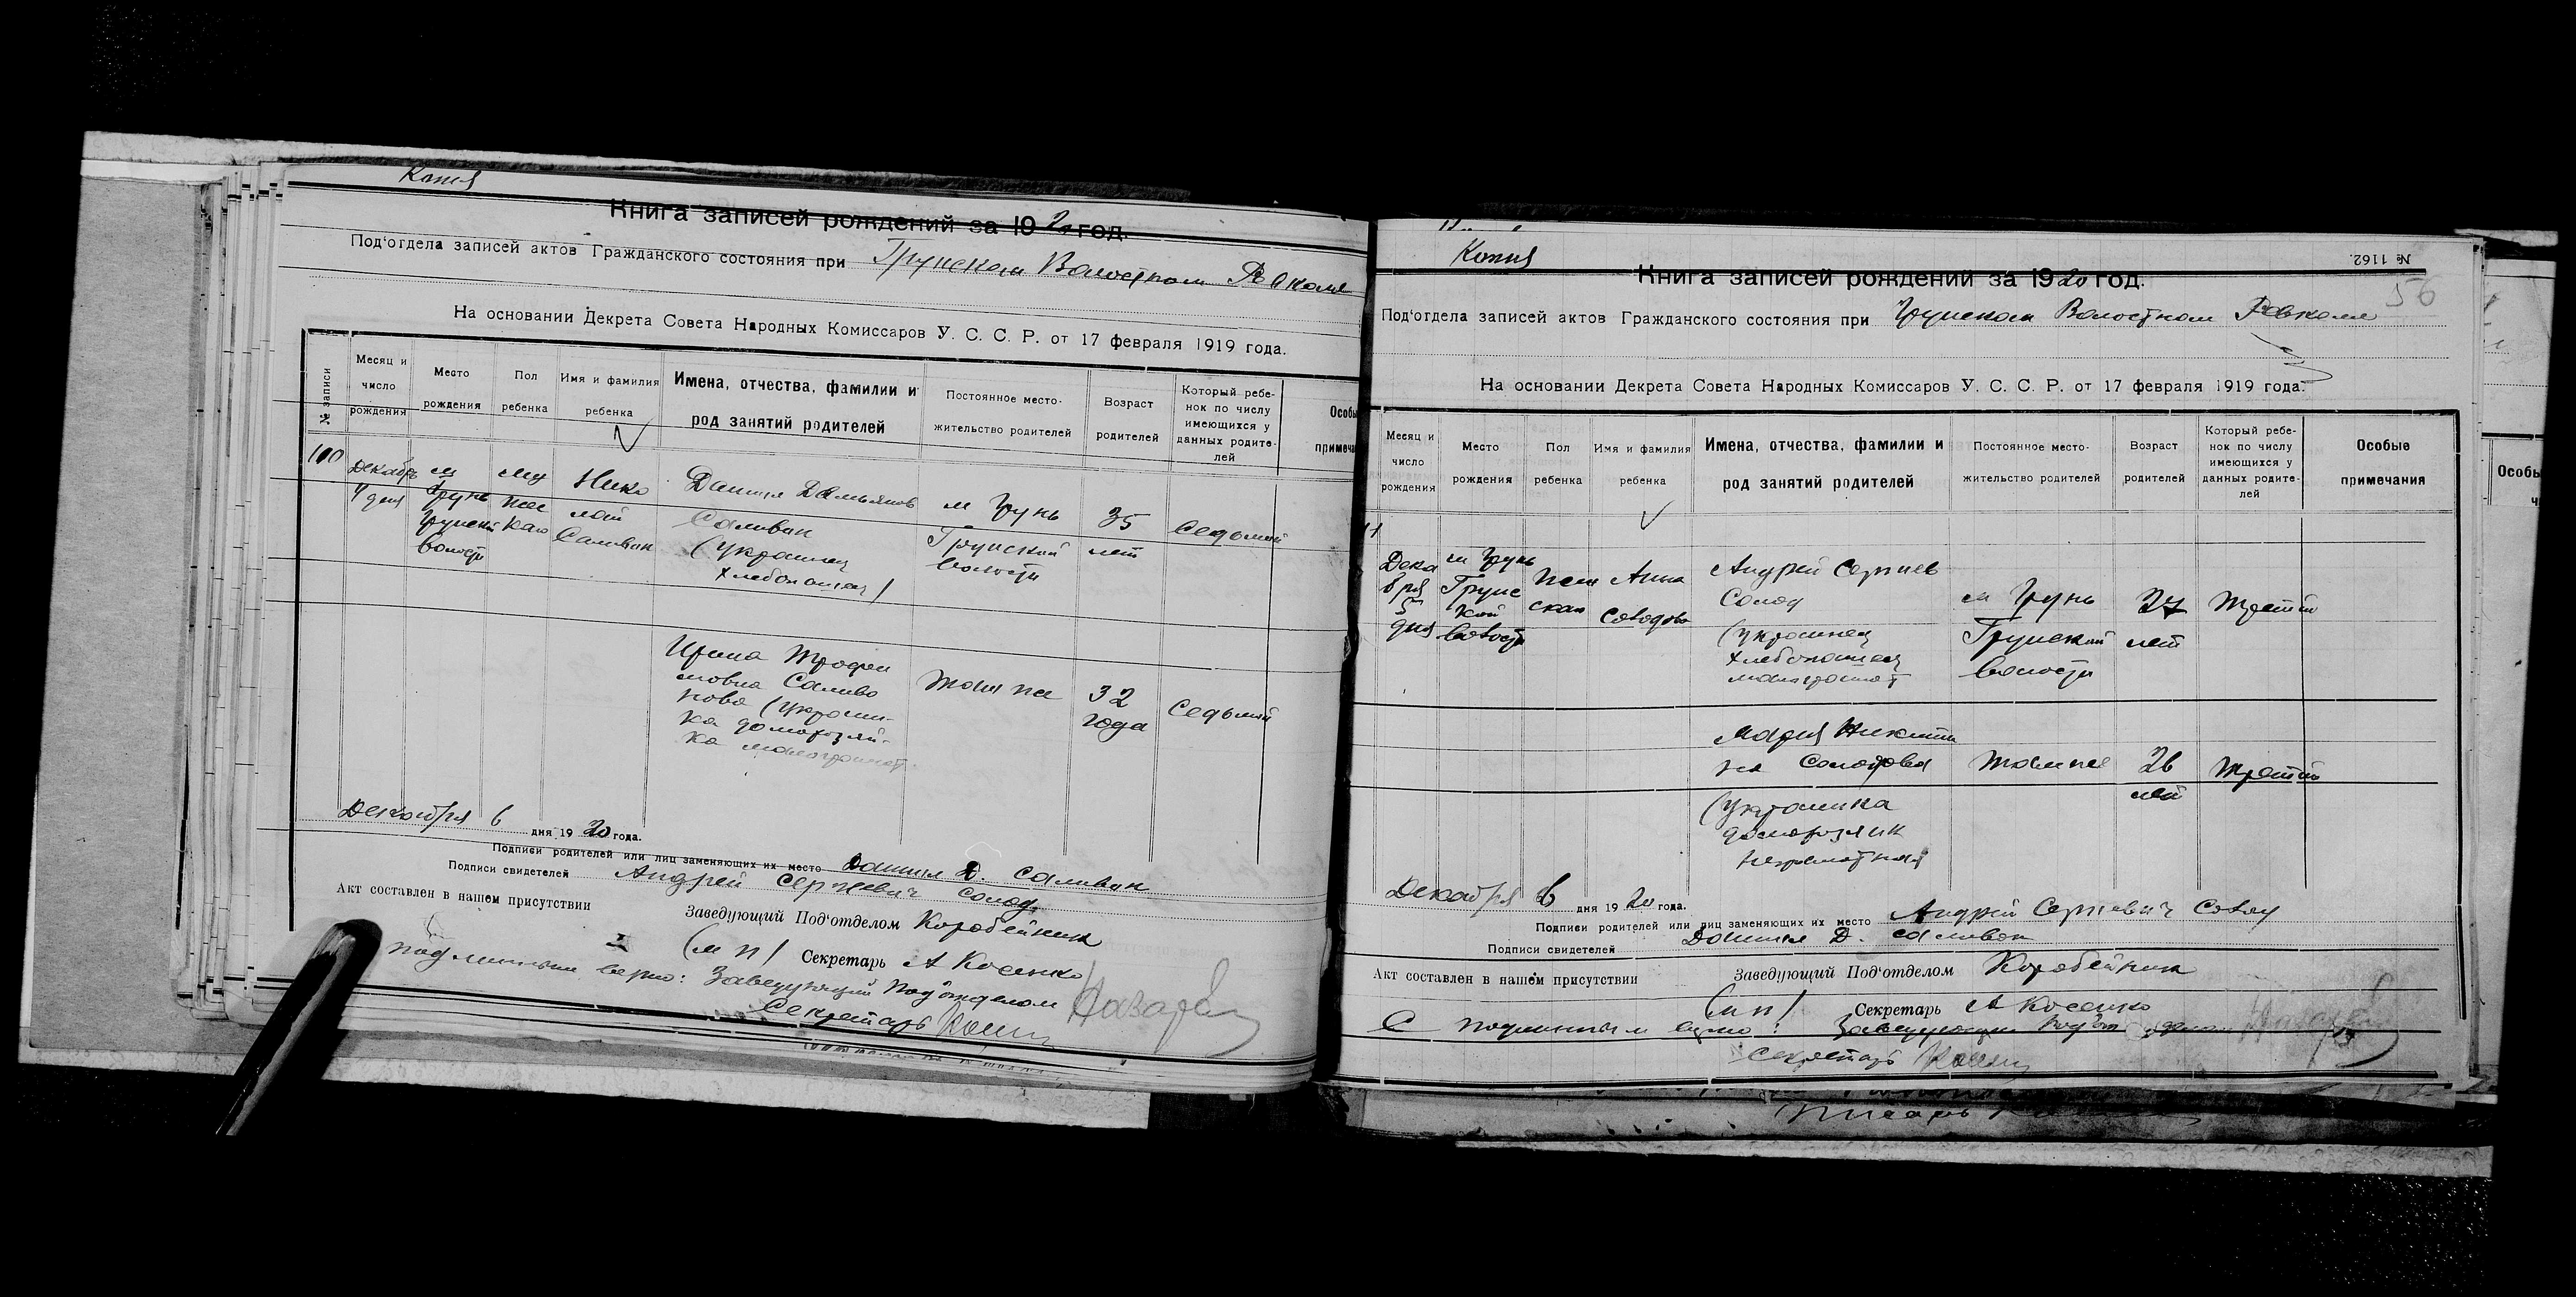 Копия
Книга записей рождений за 1920 год.
Под'отдела записей актов Гражданского состояния при Грунском Волостном
На основании Декрета Совета Народных Комиссаров У. С. С. Р. от 17 февраля 1919 года.
№ записи
Месяц и
число
рождения
Место
рождения
Пол
ребенка
Имя и фамилия
ребенка
Имена, отчества, фамилии и
род занятий родителей
Постоянное место-
жительство родителей
Возраст
родителей
Который ребе-
нок по числу
имеющихся у
данных родите-
лей
100
Декабрь
4 дня
м
Грунь
Грунской
волости
му
жес
кая
Нико
лай
Саливан
Даниил Демьянов
Саливан
(украинец
хлебопашец)
м Грунь
Грунской
волости
35
лет
Седьмой
Ирина Трофи
мовна Саливо
нова (украин-
ка домохозяй-
ка малограмот.
там же
32
года
Седьмой
Декабря 6 дня 1920 года.
Подписи родителей или лиц заменяющих их место Даниил Д. Саливан
Подписи свидетелей Андрей Сергеевич Солод
Акт составлен в нашем присутствии
Заведующий Под'отделом Коробейник
(м п) Секретарь А Косенко
подлинным верно: Заведующий Под'отделом
Секретарь
Копия
№ 1162.
Книга записей рождений за 1920 год.
56
Под'отдела записей актов Гражданского состояния при Грунском Волостном Ревкоме
На основании Декрета Совета Народных Комиссаров У. С. С. Р. от 17 февраля 1919 года.
Месяц и
число
рождения
Место
рождения
Пол
ребенка
Имя и фамилия
ребенка
Имена, отчества, фамилии и
род занятий родителей
Постоянное место-
жительство родителей
Возраст
родителей
Который ребе-
нок по числу
имеющихся у
данных родите-
лей
Особые
примечания
Дека
бря
5
дня
м Грунь
Грунс
кой
волости
жен
ская
Анна
Солодова
Андрей Сергиев
Солод
(украинец
хлебопашец
малограмот
м Грунь
Грунской
волости
лет
третий
Мария Никити
на Солодова
(украинка
домохозяйк
неграмотная
там же
26
лет
третий
Декабря 6 дня 1920 года.
Подписи родителей или лиц заменяющих их место Андрей Сергиевич Солод
Подписи свидетелей Даниил Д. Саливан
Акт составлен в нашем присутствии
Заведующий Под'отделом Коробейник
(м п) Секретарь А Косенко
С подлинным верно: Заведующий Под'отделом
Секретарь